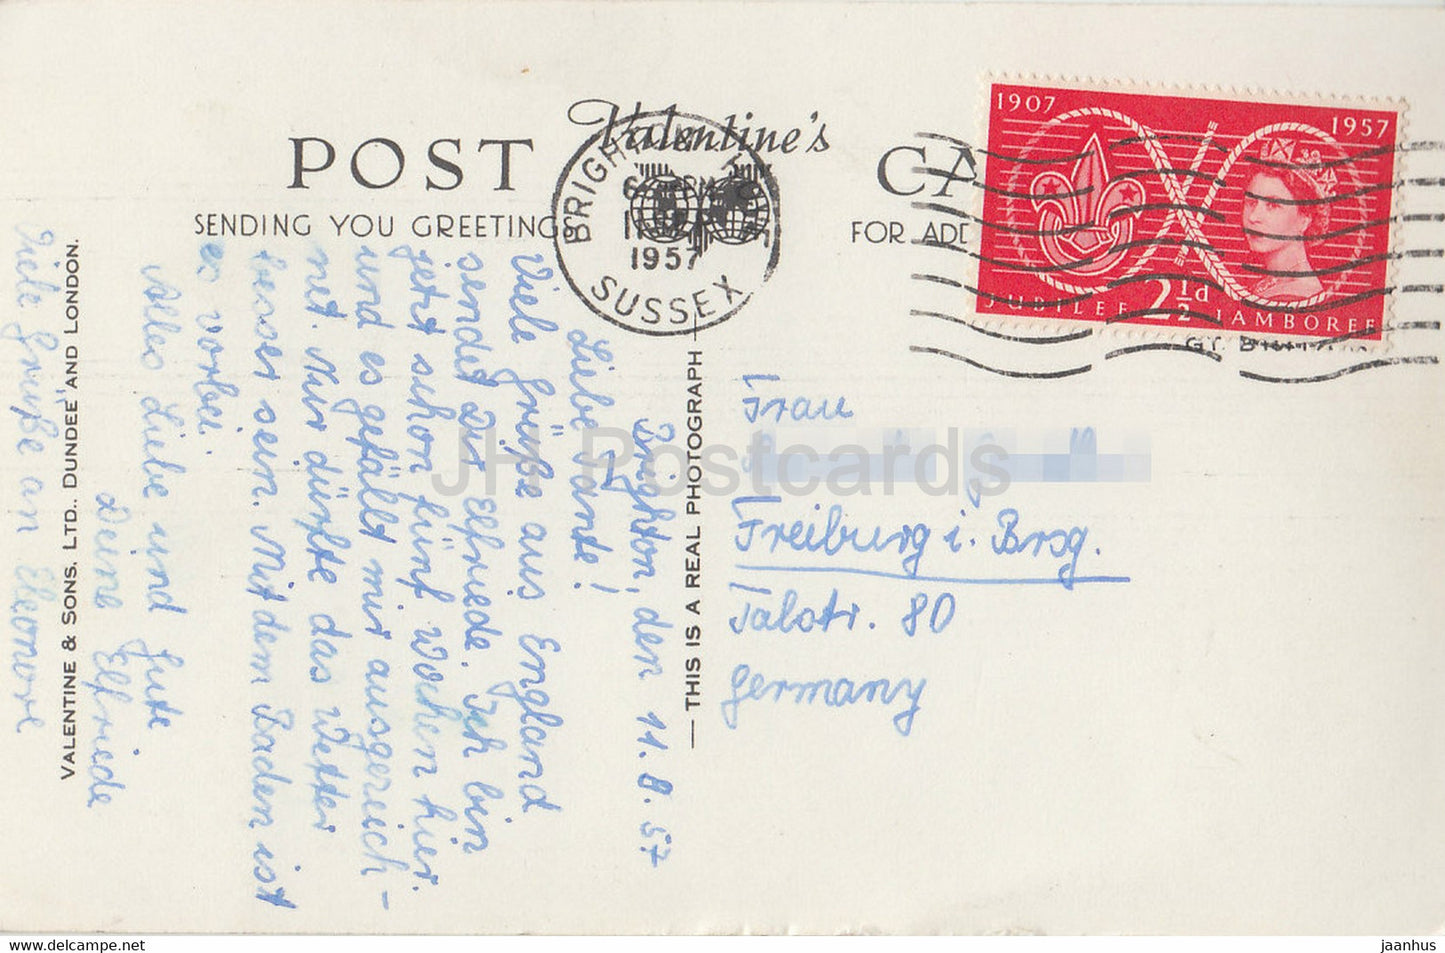 Valentine's
POST CA
SENDING YOU GREETINGS
FOR ADD
BRIGHTON
1957
SUSSEX
1907
1957
JUBILEE 2½d JAMBOREE
Brighton, den 11.8.57
Liebe Tante!
Viele Grüße aus England
sendet Dir Elfriede. Ich bin
jetzt schon fünf Wochen hier
und es gefällt mir ausgereich-
net. Nur dürfte das Wetter
besser sein. Mit dem Baden ist
es vorbei.
Alles Liebe und Gute
Deine Elfriede
Viele Grüße an
VALENTINE & SONS, LTD., DUNDEE AND LONDON.
THIS IS A REAL PHOTOGRAPH
Frau
Freiburg i. Brsg.
Talstr. 80
Germany
JH Postcards
www.delcampe.net
jaanhus